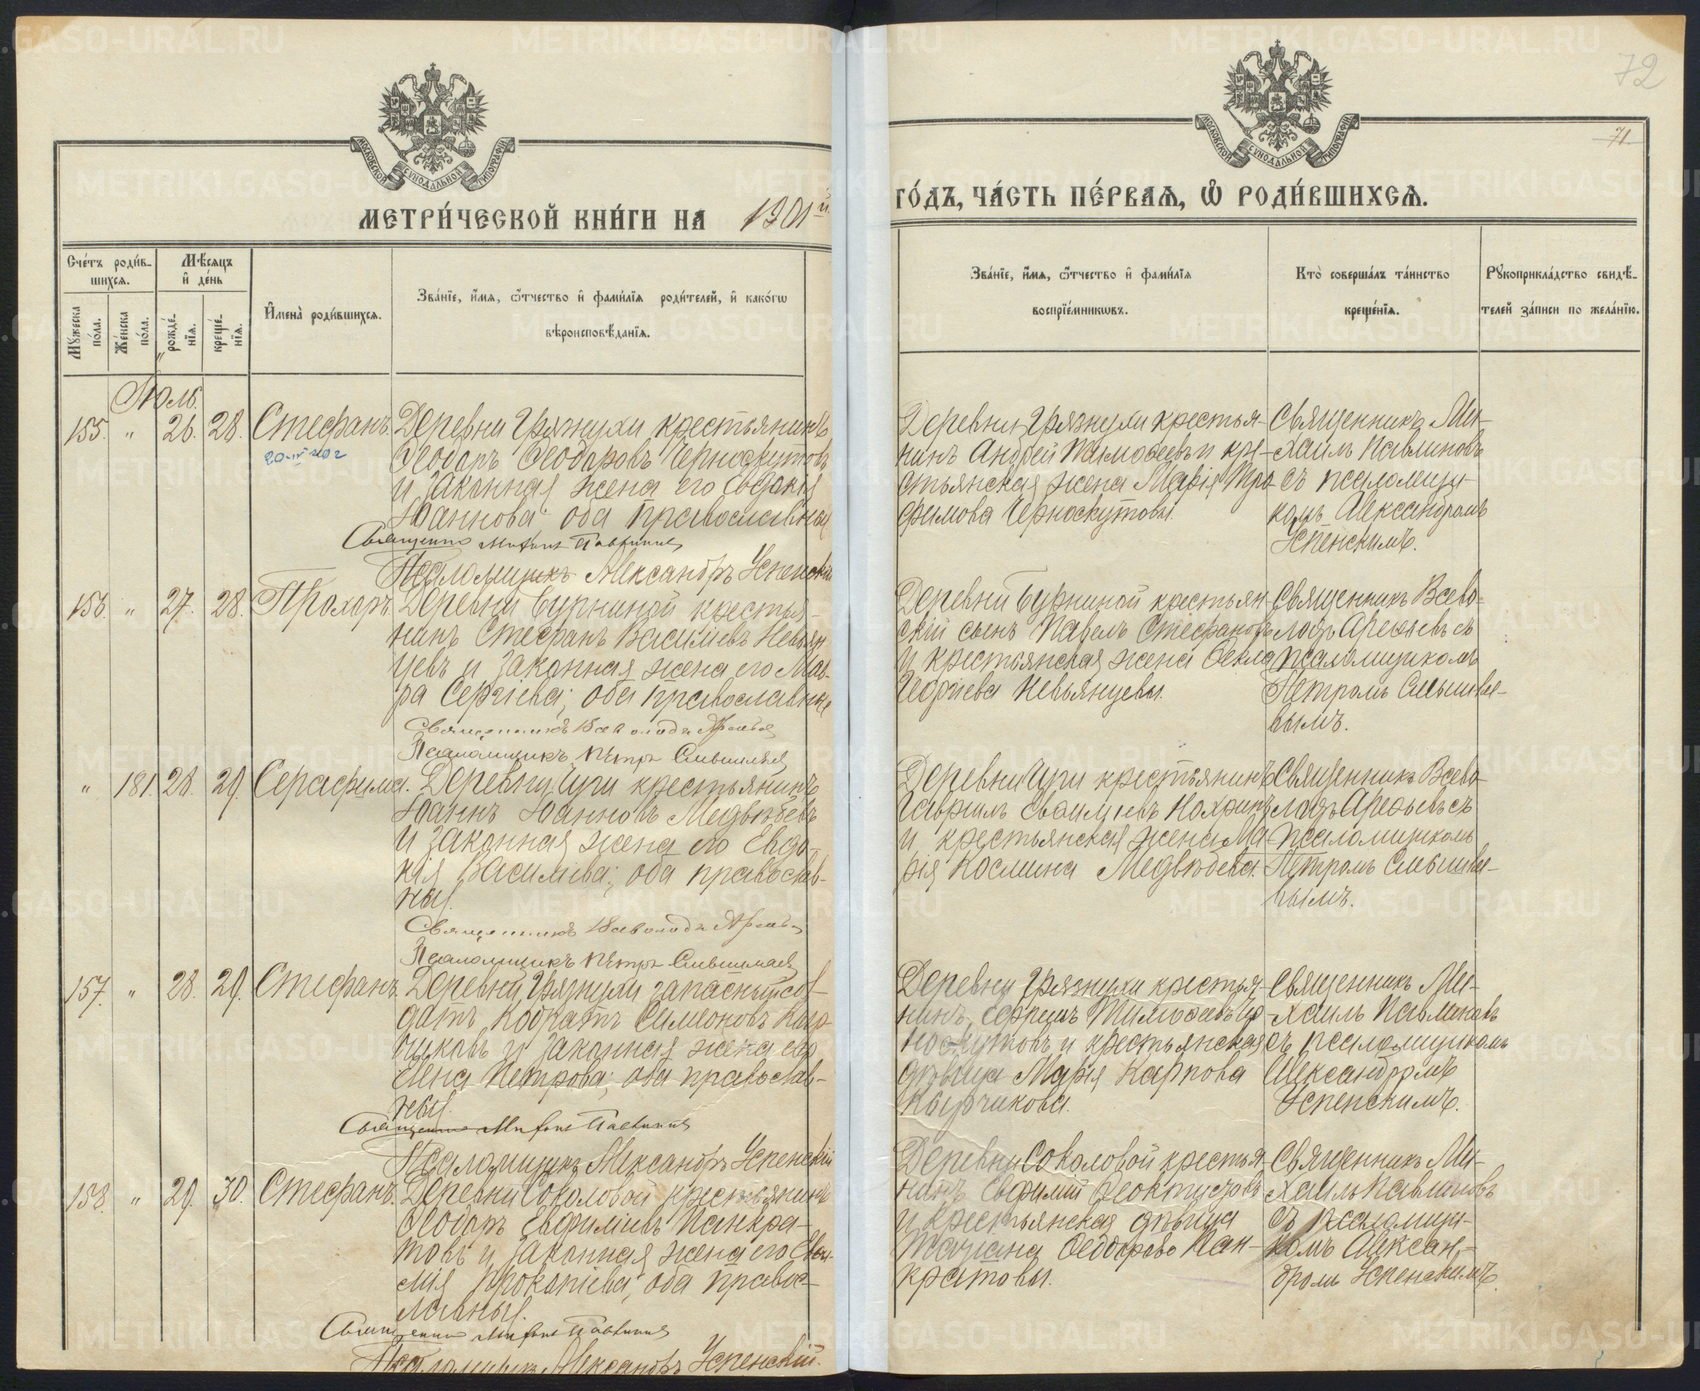 72
71
МОСКОВСКОЙ СУНОДАЛЬНОЙ ТИПОГРАФІИ
МОСКОВСКОЙ СУНОДАЛЬНОЙ ТИПОГРАФІИ
МЕТРИ́ЧЕСКОЙ КНИ́ГИ НА 1901й
ГО́ДЪ, ЧА́СТЬ ПЕ́РВАѦ, Ѡ҆ РОДИ́ВШИХСѦ.
Сче́тъ роди́в-
шихсѧ.
Мꙋ́жеска по́ла.
Же́нска по́ла.
Мѣ́сѧцъ
и҆ де́нь
рожде́-
нїѧ.
креще́-
нїѧ.
И҆мена̀ роди́вшихсѧ.
Зва́нїе, и҆́мѧ, ѻ҆́тчество и҆ фами́лїѧ роди́телей, и҆ како́гѡ
вѣроисповѣ́данїѧ.
Зва́нїе, и҆́мѧ, ѻ҆́тчество и҆ фами́лїѧ
воспрїе́мникѡвъ.
Кто̀ соверша́лъ та́инство
креще́нїѧ.
Рꙋкоприкла́дство свидѣ́-
телей за́писи по жела́нїю.
Іюль.
155. " 26. 28. Стефанъ.
Деревни Грязнухи крестьянинъ
Ѳеодоръ Ѳеодоровъ Черноскутовъ
и законная жена его Евдокія
Іоаннова; оба православные
Священникъ Михаилъ Павлиновъ
Псаломщикъ Александръ Успенскій
Деревни Грязнухи крестья-
нинъ Андрей Тимоѳеевъ и кре-
стьянская жена Марія Тро-
фимова Черноскутовы.
Священникъ Ми-
хаилъ Павлиновъ
съ псаломщи-
комъ Александромъ
Успенскимъ.
156. " 27. 28. Прохоръ.
Деревни Бурниной крестья-
нинъ Стефанъ Васильевъ Невьян-
цевъ и законная жена его Мав-
ра Сергіева; оба православные
Священникъ Всеволодъ Арефьевъ
Псаломщикъ Петръ Смышляевъ
Деревни Бурниной крестьян-
скій сынъ Павелъ Стефановъ
и крестьянская жена Ѳекла
Георгіева Невьянцевы.
Священникъ Всево-
лодъ Арефьевъ съ
псаломщикомъ
Петромъ Смышляе-
вымъ.
" 181. 28. 29. Серафима.
Деревни Чуги крестьянинъ
Іоаннъ Іоанновъ Медвѣдевъ
и законная жена его Евдо-
кія Васильева; оба православ-
ные.
Священникъ Всеволодъ Арефьевъ
Псаломщикъ Петръ Смышляевъ
Деревни Чуги крестьянинъ
Гавріилъ
и крестьянская жена Ма-
рія Космина Медвѣдева.
Священникъ Всево-
лодъ Арефьевъ съ
псаломщикомъ
Петромъ Смышляе-
вымъ.
157. " 28. 29. Стефанъ.
Деревни Грязнухи запасный сол-
датъ Кодратъ Симеоновъ Кыр-
чиковъ и законная жена его
Елена Петрова; оба православ-
ные.
Священникъ Михаилъ Павлиновъ
Псаломщикъ Александръ Успенскій
Деревни Грязнухи крестья-
нинъ Ефремъ Тимоѳеевъ Чер-
носкутовъ и крестьянская
дѣвица Марія Карпова
Кырчикова.
Священникъ Ми-
хаилъ Павлиновъ
съ псаломщикомъ
Александромъ
Успенскимъ.
158. " 29. 30. Стефанъ.
Деревни Соколовой крестьянинъ
Ѳеодоръ Евфиміевъ Панкра-
товъ и законная жена его Евѳи-
мія Прокопіева; оба право-
славные.
Священникъ Михаилъ Павлиновъ
Псаломщикъ Александръ Успенскій.
Деревни Соколовой крестья-
нинъ Евфимій Ѳеоктистовъ
и крестьянская дѣвица
Татіана Ѳеодорова Пан-
кратовы.
Священникъ Ми-
хаилъ Павлиновъ
съ псаломщи-
комъ Алексан-
дромъ Успенскимъ.
METRIKI.GASO-URAL.RU